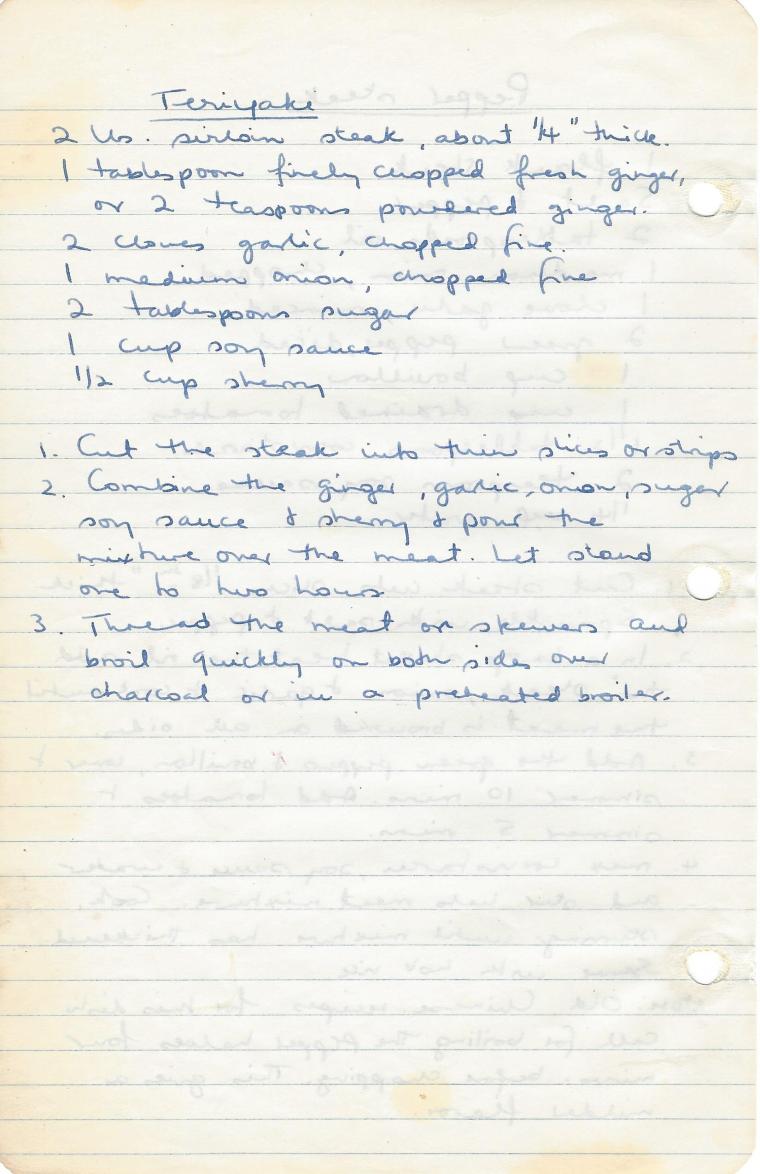 Teriyaki
2 lbs. sirloin steak, about 1/4" thick.
1 tablespoon finely chopped fresh ginger,
or 2 teaspoons powdered ginger.
2 cloves garlic, chopped fine.
1 medium onion, chopped fine
2 tablespoons sugar
1 cup soy sauce
1/2 cup sherry
1. Cut the steak into thin slices or strips
2. Combine the ginger, garlic, onion, sugar
soy sauce & sherry & pour the
mixture over the meat. Let stand
one to two hours
3. Thread the meat on skewers and
broil quickly on both sides over
charcoal or in a preheated broiler.